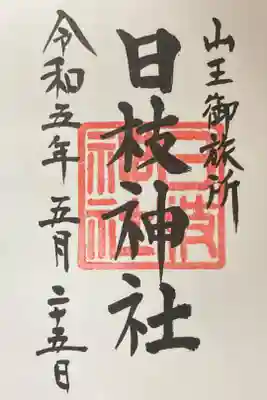 山王御旅所
日枝神社
日枝神社
令和五年 五月 二十五日